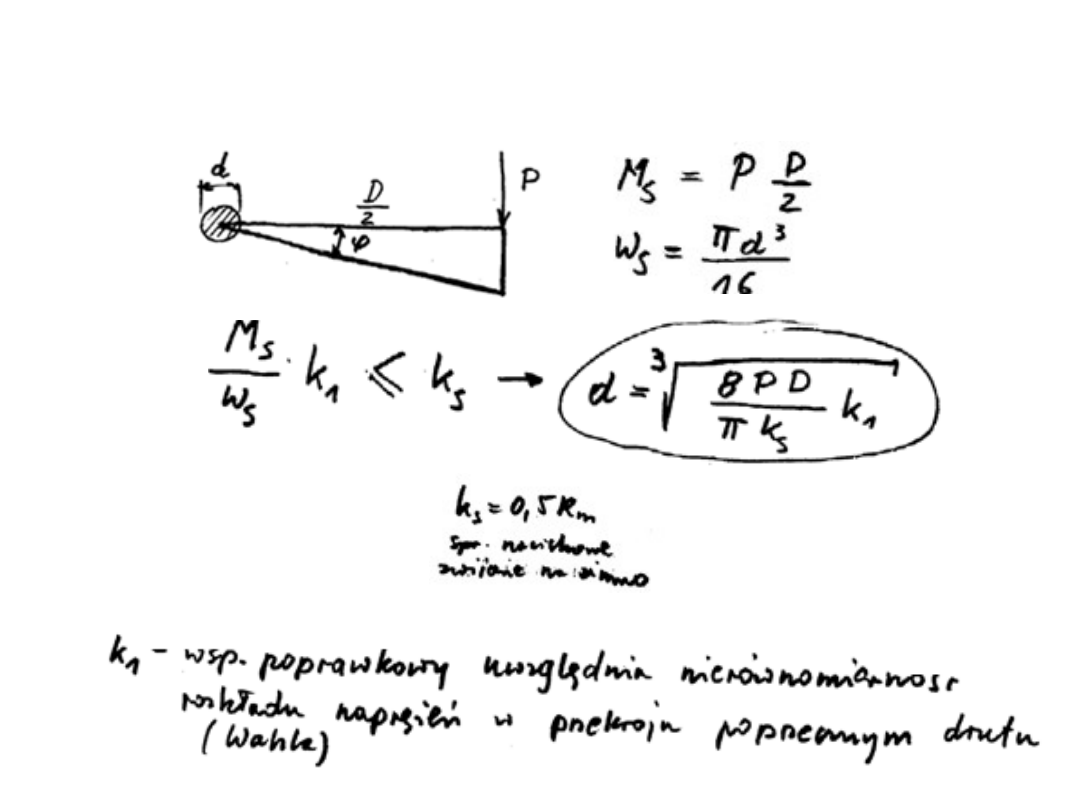 d
D/2
P
φ
M_S = P D/2
W_S = πd³/16
M_S/W_S · k₁ ≤ k_S → d = ³√(8PD/(πk_S) k₁)
k_s = 0,5 R_m
spr. naciskowe
zwijane na zimno
k₁ – wsp. poprawkowy uwzględnia nierównomierność
rozkładu naprężeń w przekroju poprzecznym drutu
(Wahla)